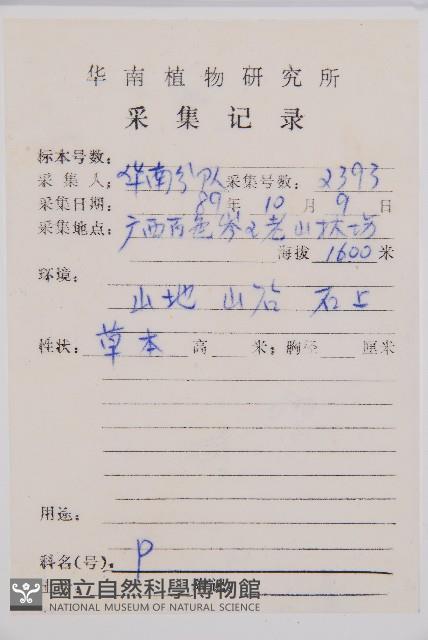 华南植物研究所
采集记录
标本号数:
采集人: 华南分队 采集号数: 2393
采集日期: 89年 10月 9日
采集地点: 广西百色岑王老山林场
海拔 1600米
环境:
山地 山谷 石上
性状: 草本 高 米; 胸径 厘米
用途:
科名(号): P
國立自然科學博物館
NATIONAL MUSEUM OF NATURAL SCIENCE